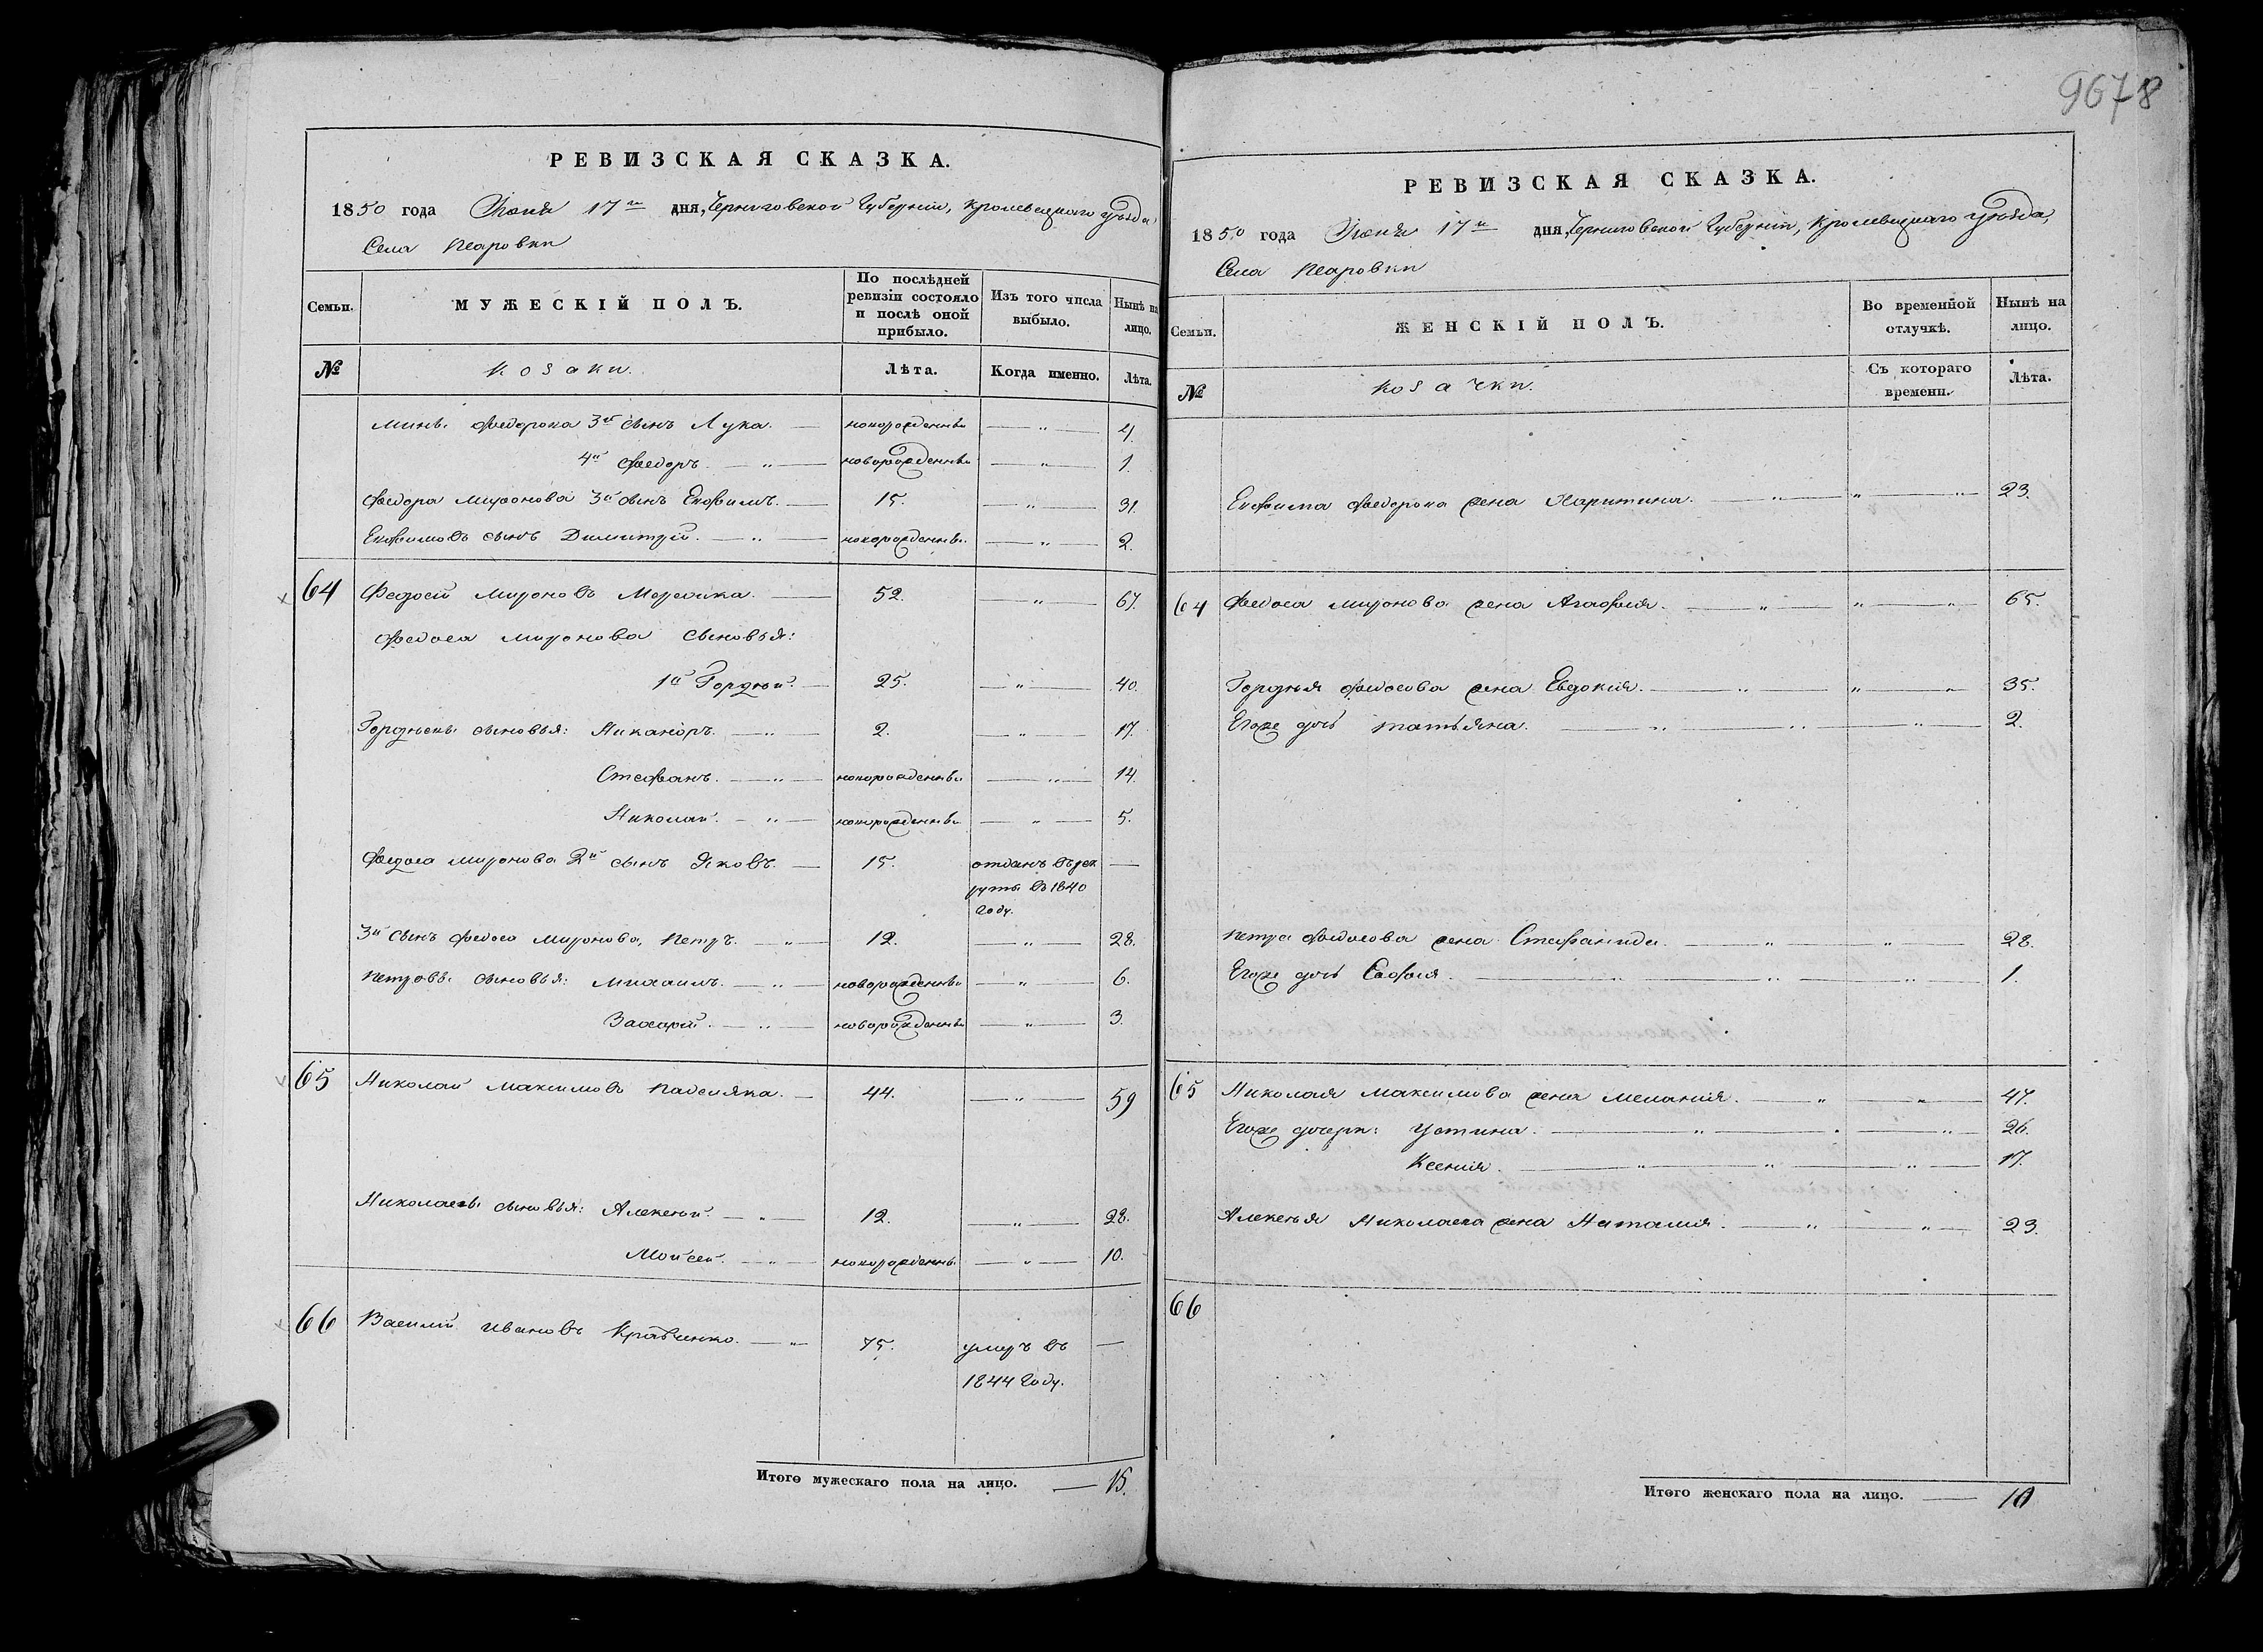 9678
РЕВИЗСКАЯ СКАЗКА.
1850 года Июня 17го дня, Черниговской Губерніи, Кролевецкаго уѣзда,
Села
Семьи. МУЖЕСКІЙ ПОЛЪ. По послѣдней ревизіи состояло и послѣ оной прибыло. Изъ того числа выбыло. Нынѣ на лицо.
№ Козаки. Лѣта. Когда именно. Лѣта.
Федорова 3й сынъ Лука. новорожденны 4.
4й Федоръ. новорожденны 1.
Федора Миронова 3й сынъ Евфимъ. 15. 31.
Евфимовъ сынъ Димитрій. новорожденны 2.
64 Федосій Мироновъ 52. 67.
Федоса Миронова сыновья:
1й Гордѣй. 25. 40.
Гордѣевы сыновья: Никаноръ. 2. 17.
Стефанъ. новорожденны 14.
Николай. новорожденны 5.
Федоса Миронова 2й сынъ Яковъ. 15. отданъ въ рек
руты въ 1840
году.
3й сынъ Федоса Миронова, Петръ. 12. 28.
Петровы сыновья: Михаилъ. новорожденны 6.
Захарій. новорожденны 3.
65 Николай Максимовъ 44. 59
Николаевы сыновья: Алексѣй. 12. 28.
Мойсей. новорожденны 10.
66 Василій Ивановъ Кравченко. 75. умеръ въ
1844 году.
Итого мужескаго пола на лицо. 15.
РЕВИЗСКАЯ СКАЗКА.
1850 года Июня 17го дня, Черниговской Губерніи, Кролевецкаго уѣзда,
Села
Семьи. ЖЕНСКІЙ ПОЛЪ. Во временной отлучкѣ. Нынѣ на лицо.
№ Козачки. Съ котораго времени. Лѣта.
Евфима Федорова жена Харитина. 23.
64 Федоса Миронова жена Агафія. 65.
Гордѣя Федосова жена Евдокія. 35.
Егоже дочь Татьяна. 2.
Петра Федосова жена Стефанида. 28.
Егоже дочь Софія. 1.
65 Николая Максимова жена Меланія. 47.
Егоже дочери: Устина. 26.
Ксенія. 17.
Алексѣя Николаева жена Наталія. 23.
66
Итого женскаго пола на лицо. 10